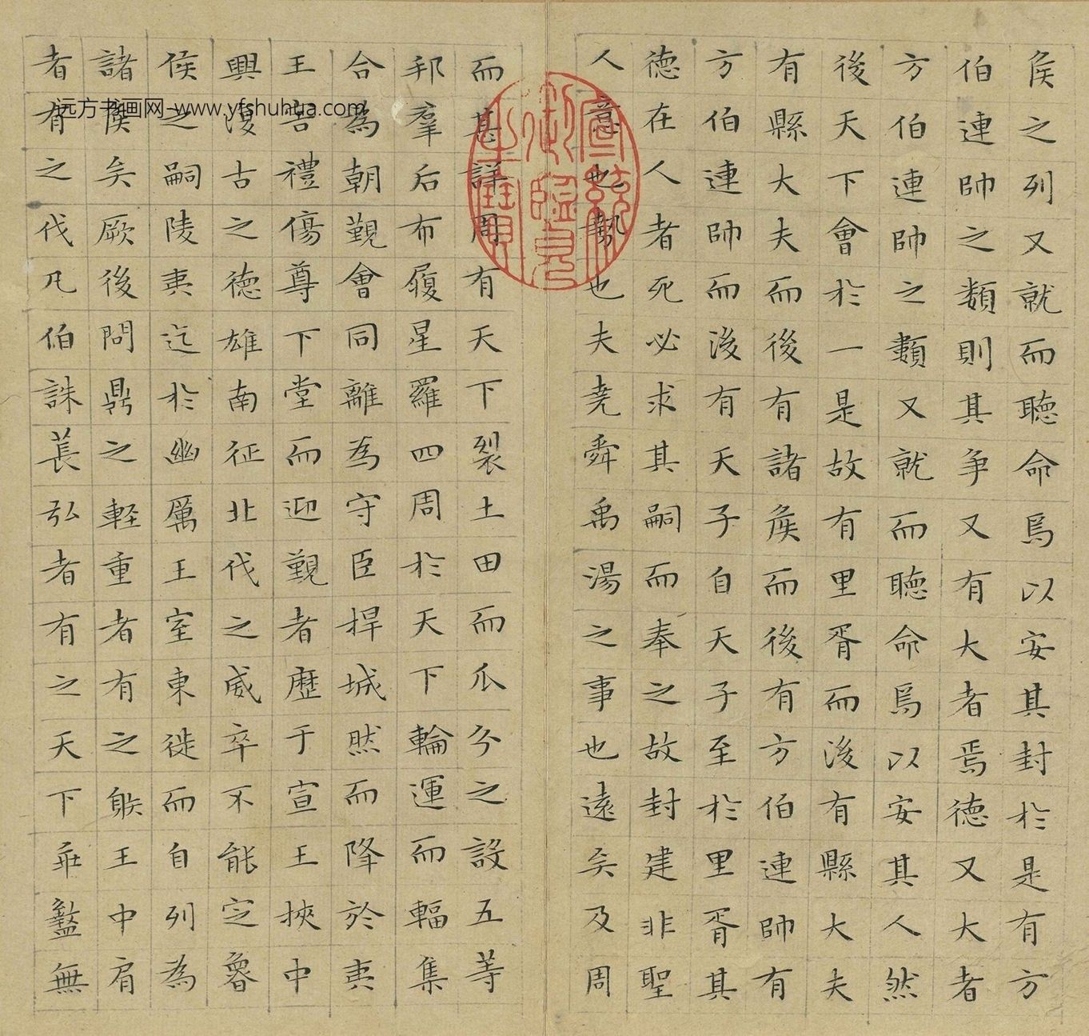 矦之列又就而聴命焉以安其封於是有方
伯連帥之類則其争又有大者焉德又大者
方伯連帥之類又就而聴命焉以安其人然
後天下會於一是故有里胥而後有縣大夫
有縣大夫而後有諸矦而後有方伯連帥有
方伯連帥而後有天子自天子至於里胥其
德在人者死必求其嗣而奉之故封建非聖
人意也勢也夫尭舜禹湯之事也遠矣及周
而甚詳周有天下裂土田而瓜分之設五等
邦羣后布履星羅四周於天下輪運而輻集
合為朝覲會同離為守臣捍城然而降於夷
王害禮傷尊下堂而迎覲者歴于宣王挾中
興復古之德雄南征北伐之威卒不能定魯
侯之嗣陵夷迄於幽厲王室東徙而自列為
諸侯矣厥後問鼎之軽重者有之射王中肩
者有之伐凡伯誅萇弘者有之天下乖盭無
宣統御覽之寶
远方书画网-www.yfshuhua.com